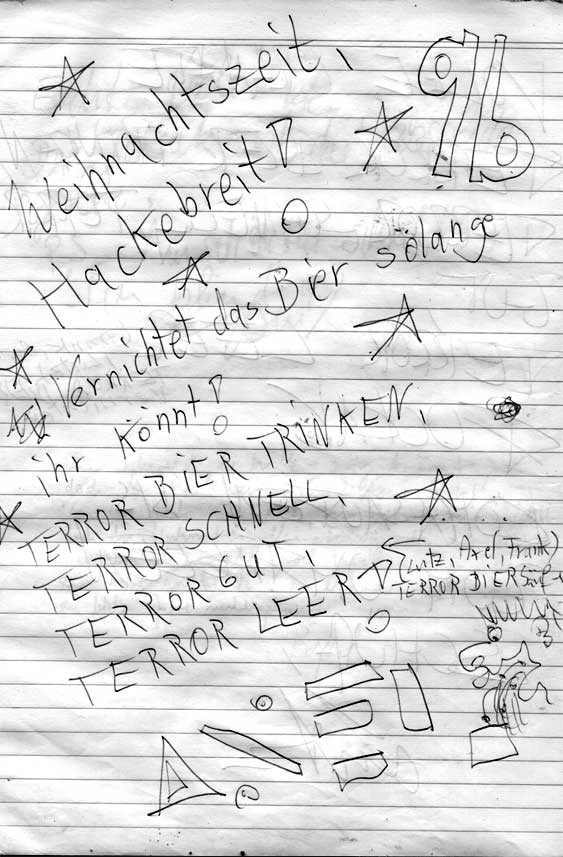 96
Weihnachtszeit,
Hackebreit!
Vernichtet das Bier solange
ihr könnt!
TERROR BIER TRINKEN,
TERROR SCHNELL,
TERROR GUT,
TERROR LEER!
(Lutz, Axel, Frank)
TERROR BIER